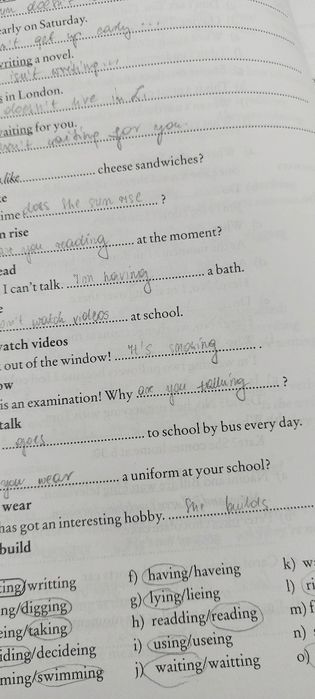 early on Saturday.
get up early ...
writing a novel.
isn't writing...
s in London.
doesn't live in L.
waiting for you.
waiting for you
like ........ cheese sandwiches?
ime does the sun rise ?
n rise
you reading ........ at the moment?
ead
I can't talk. I'm having ........ a bath.
watch videos ........ at school.
watch videos
out of the window! It's snowing .
ow
is an examination! Why are you talking ?
talk
goes ........ to school by bus every day.
you wear ........ a uniform at your school?
wear
has got an interesting hobby. She builds
build
ting/writting f) having/haveing k) w
ng/digging g) lying/lieing l) ri
eing/taking h) readding/reading m) f
iding/decideing i) using/useing n)
ming/swimming j) waiting/waitting o)